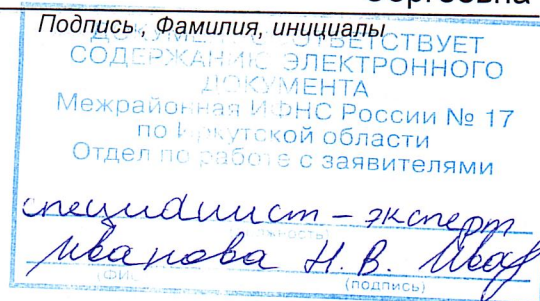 Подпись , Фамилия, инициалы
ДОКУМЕНТ СООТВЕТСТВУЕТ
СОДЕРЖАНИЮ ЭЛЕКТРОННОГО
ДОКУМЕНТА
Межрайонная ИФНС России № 17
по Иркутской области
Отдел по работе с заявителями
специалист – эксперт
(должность)
Иванова Н. В.
(ФИО) (подпись)